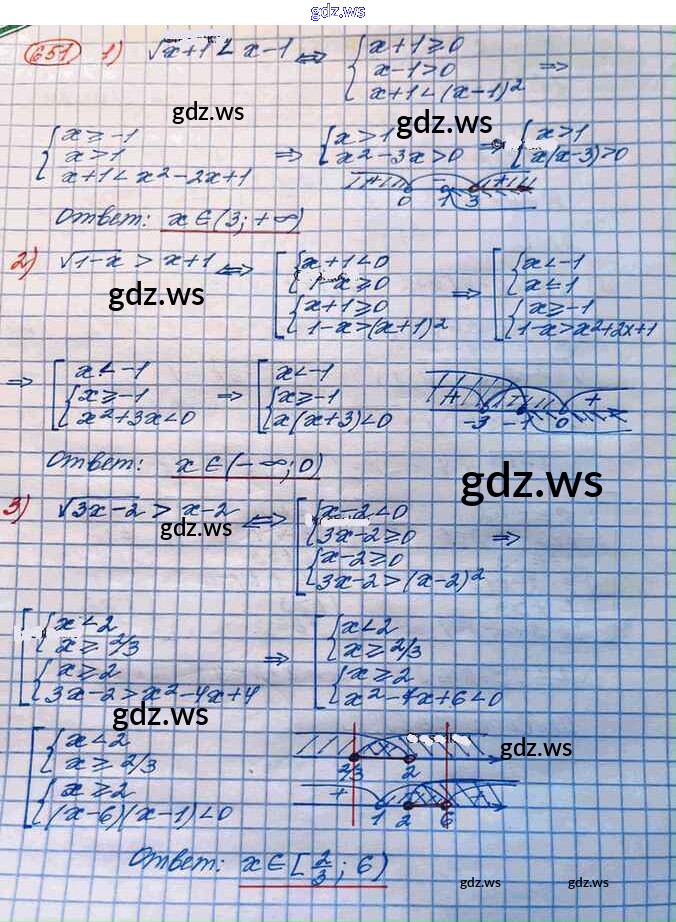 gdz.ws
651 1) √x+1 < x-1 ⇔ { x+1≥0
x-1>0 ⇒
x+1<(x-1)²
gdz.ws gdz.ws
{ x≥-1
x>1 ⇒
x+1<x²-2x+1
{ x>1
x²-3x>0 ⇒
{ x>1
x(x-3)>0
+ +
0 1 3
Ответ: x∈(3;+∞)
2) √1-x > x+1 ⇔ [ { x+1<0
1-x≥0
{ x+1≥0 ⇒
1-x>(x+1)²
[ { x<-1
x<1
{ x≥-1
1-x>x²+2x+1
gdz.ws
⇒ [ x<-1
{ x≥-1
x²+3x<0
⇒ [ x<-1
{ x≥-1
x(x+3)<0
+ +
-3 -1 0
Ответ: x∈(-∞;0)
gdz.ws
3) √3x-2 > x-2 ⇔ [ { x-2<0
3x-2≥0 ⇒
{ x-2≥0
3x-2>(x-2)²
gdz.ws
[ { x<2
x≥2/3
{ x≥2
3x-2>x²-4x+4
⇒ [ { x<2
x≥2/3
{ x≥2
gdz.ws
[ { x<2
x≥2/3
{ x≥2
(x-6)(x-1)<0
2/3 2
gdz.ws
+
1 2 6
Ответ: x∈[2/3; 6)
gdz.ws gdz.ws